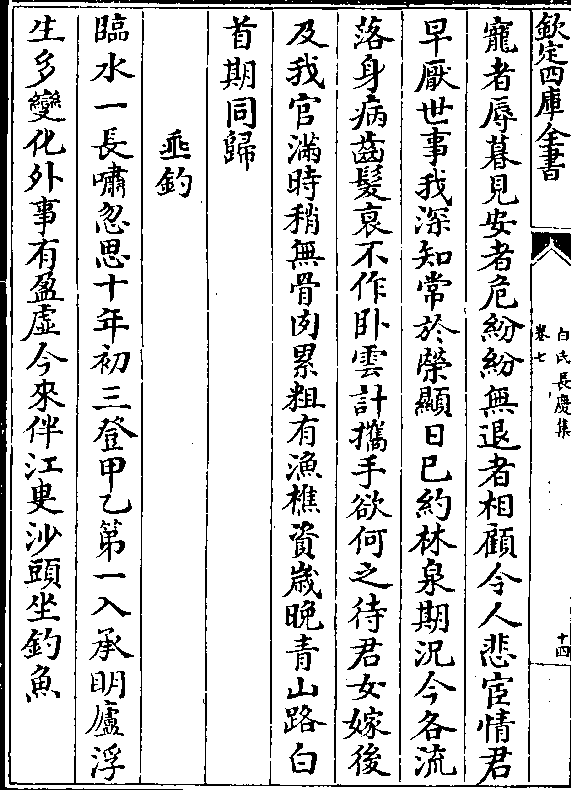 欽定四庫全書
白氏長慶集
卷七
十四
寵者辱暮見安者危紛紛無退者相顧令人悲宦情君
早厭世事我深知常於榮顯日已約林泉期況今各流
落身病齒髮衰不作卧雲計攜手欲何之待君女嫁後
及我官滿時稍無骨肉累粗有漁樵資歲晚青山路白
首期同歸
垂釣
臨水一長嘯忽思十年初三登甲乙第一入承明廬浮
生多變化外事有盈虛今來伴江叟沙頭坐釣魚